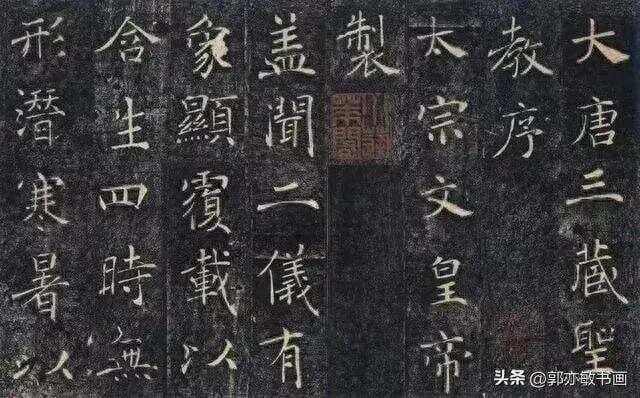 大唐三藏聖
教序
太宗文皇帝
製
盖聞二儀有
象顯覆載以
含生四時無
形潛寒暑以
头条 @郭亦敏书画